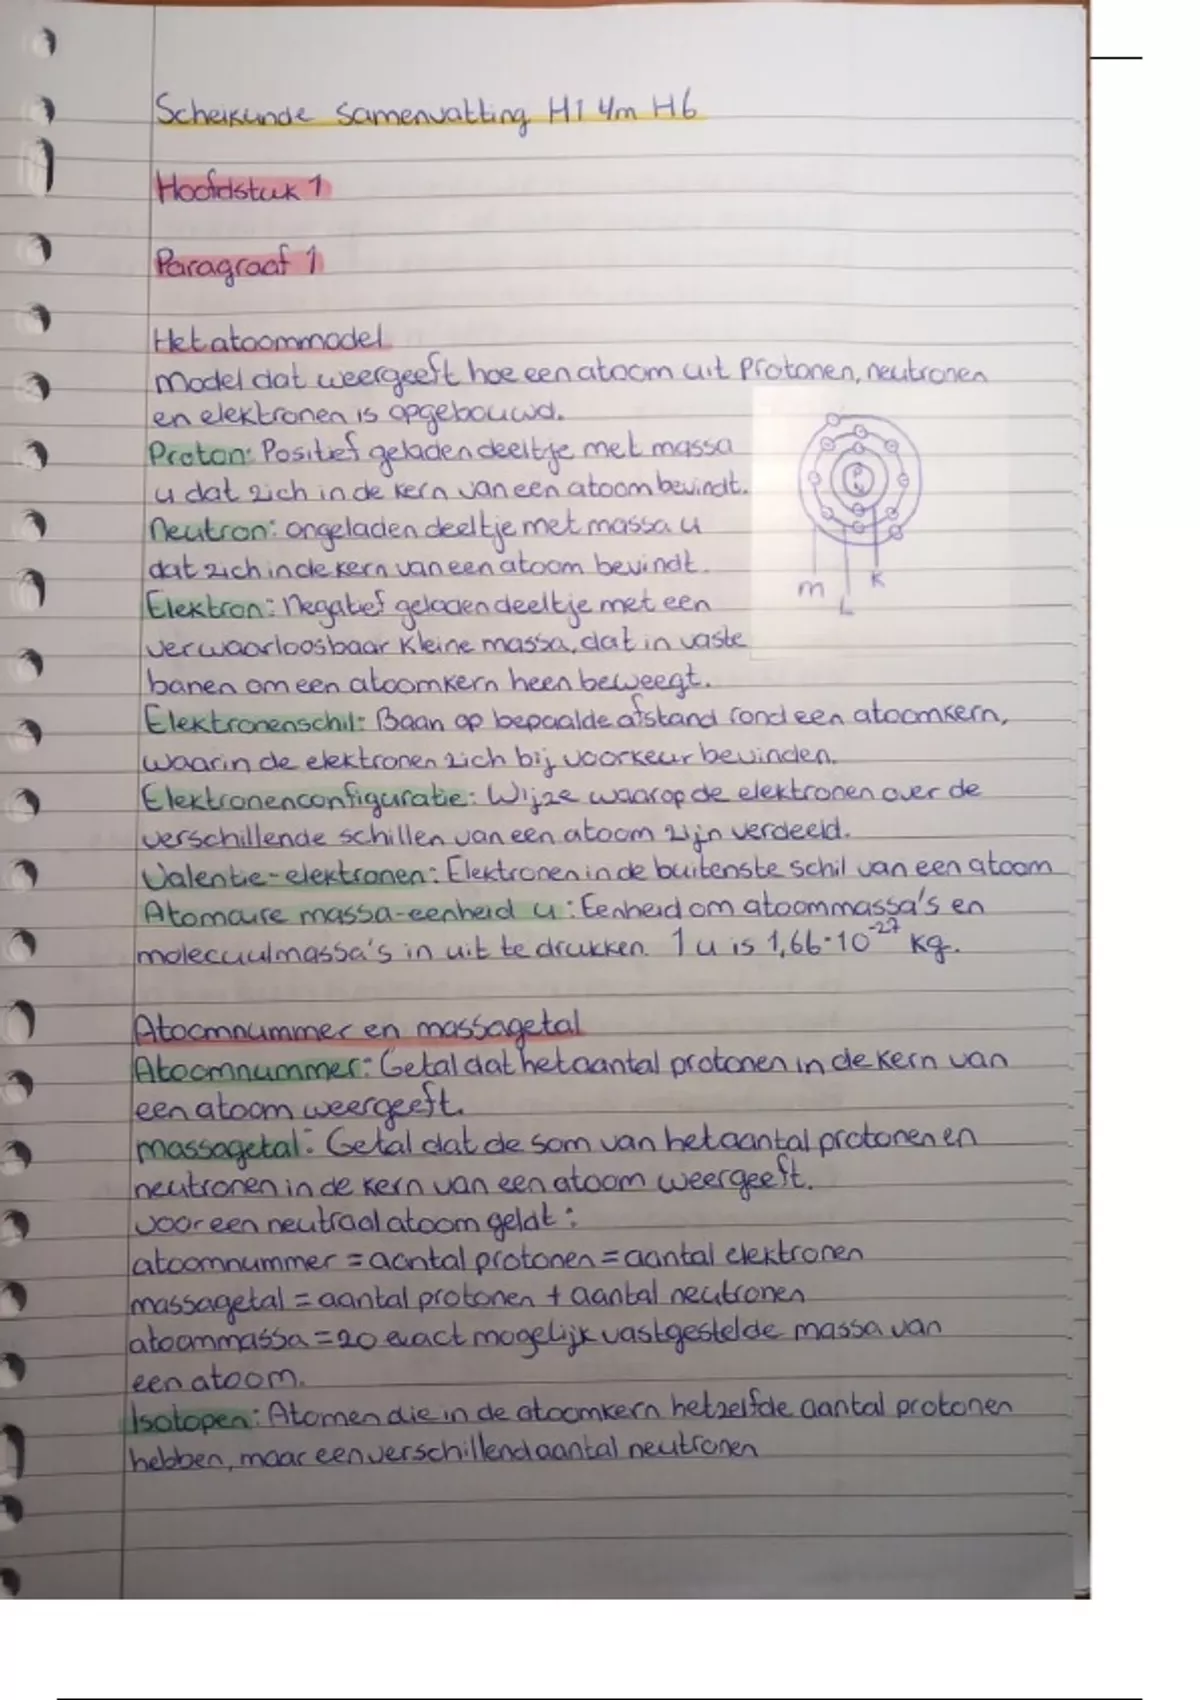 Scheikunde samenvatting H1 t/m H6
Hoofdstuk 1
Paragraaf 1
Het atoommodel
Model dat weergeeft hoe een atoom uit Protonen, neutronen
en elektronen is opgebouwd.
Proton: Positief geladen deeltje met massa
u dat zich in de kern van een atoom bevindt.
Neutron: ongeladen deeltje met massa u
dat zich in de kern van een atoom bevindt.
Elektron: Negatief geladen deeltje met een
verwaarloosbaar kleine massa, dat in vaste
banen om een atoomkern heen beweegt.
P
N
m
L
K
Elektronenschil: Baan op bepaalde afstand rond een atoomkern,
waarin de elektronen zich bij voorkeur bevinden.
Elektronenconfiguratie: Wijze waarop de elektronen over de
verschillende schillen van een atoom zijn verdeeld.
Valentie-elektronen: Elektronen in de buitenste schil van een atoom
Atomaire massa-eenheid u: Eenheid om atoommassa's en
molecuulmassa's in uit te drukken. 1 u is 1,66·10⁻²⁷ kg.
Atoomnummer en massagetal
Atoomnummer: Getal dat het aantal protonen in de kern van
een atoom weergeeft.
massagetal: Getal dat de som van het aantal protonen en
neutronen in de kern van een atoom weergeeft.
voor een neutraal atoom geldt:
atoomnummer = aantal protonen = aantal elektronen
massagetal = aantal protonen + aantal neutronen
atoommassa = zo exact mogelijk vastgestelde massa van
een atoom.
Isotopen: Atomen die in de atoomkern hetzelfde aantal protonen
hebben, maar een verschillend aantal neutronen